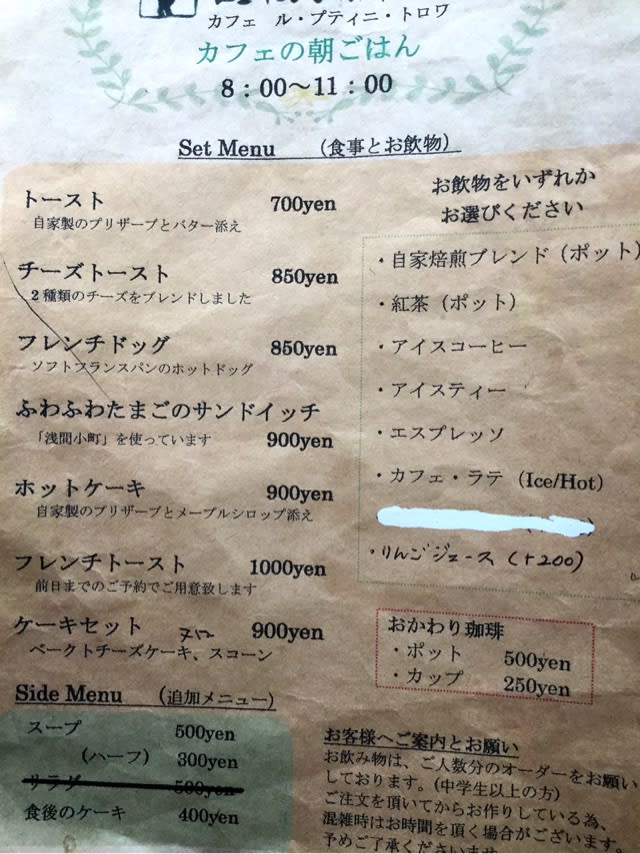 カフェ ル・プティニ・トロワ
カフェの朝ごはん
8:00～11:00
Set Menu (食事とお飲物)
トースト 700yen
自家製のプリザーブとバター添え
チーズトースト 850yen
2種類のチーズをブレンドしました
フレンチドッグ 850yen
ソフトフランスパンのホットドッグ
ふわふわたまごのサンドイッチ
「浅間小町」を使っています 900yen
ホットケーキ 900yen
自家製のプリザーブとメープルシロップ添え
フレンチトースト 1000yen
前日までのご予約でご用意致します
ケーキセット 900yen
ベークトチーズケーキ、スコーン
お飲物をいずれか
お選びください
・自家焙煎ブレンド(ポット)
・紅茶(ポット)
・アイスコーヒー
・アイスティー
・エスプレッソ
・カフェ・ラテ (Ice/Hot)
・りんごジュース (+200)
おかわり珈琲
・ポット 500yen
・カップ 250yen
Side Menu (追加メニュー)
スープ 500yen
(ハーフ) 300yen
サラダ 500yen
食後のケーキ 400yen
お客様へご案内とお願い
お飲み物は、ご人数分のオーダーをお願い
しております。(中学生以上の方)
ご注文を頂いてからお作りしている為、
混雑時はお時間を頂く場合がございます。
予めご了承くださいませ